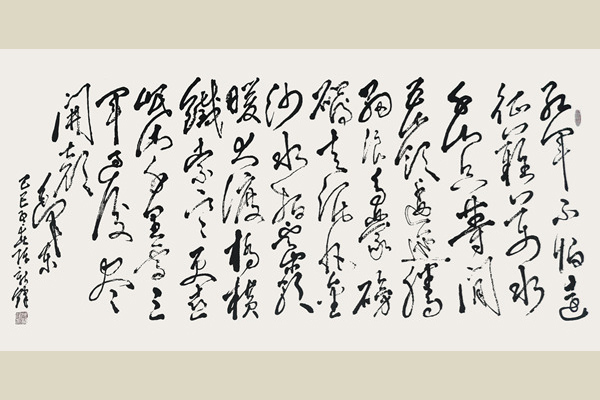 紅軍不怕遠
征難萬水
千山只等閒
五嶺逶迤騰
細浪烏蒙磅
礴走泥丸金
沙水拍雲崖
暖大渡橋橫
鐵索寒更喜
岷山千里雪三
軍過後盡
開顏
毛澤東